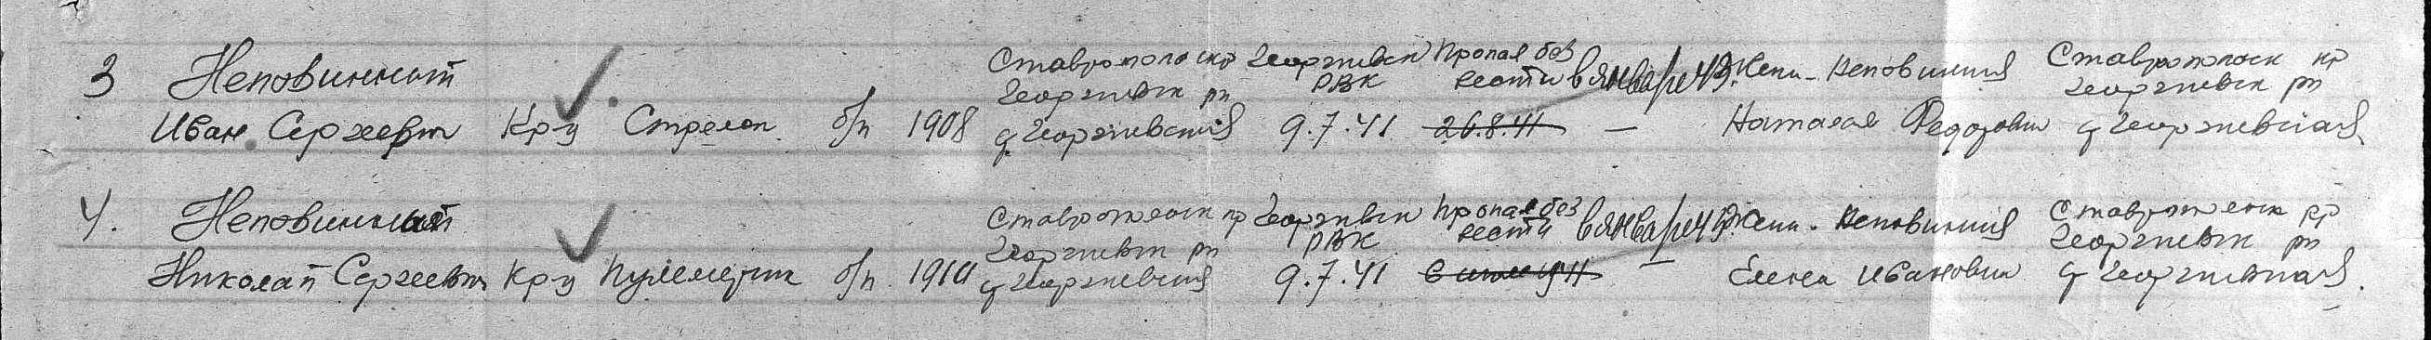 3 Неповинный Ставропольск кр Георгиевск Пропал без в январе 43. Жена - Неповинная Ставропольск кр
Георгиевск рн РВК вести Георгиевск рн
Иван Сергеевич Кр-ц Стрелок б/п 1908 Георгиевская 9.7.41 26.8.41 — Наталья Федоровн Георгиевская
4. Неповинный Ставропольск кр Георгиевск Пропал без в январе 43. Жена - Неповинная Ставропольск кр
Георгиевск рн РВК вести Георгиевск рн
Николай Сергеевич Кр-ц Пулеметчик б/п. 1910 Георгиевская 9.7.41 — Елена Ивановна Георгиевская.